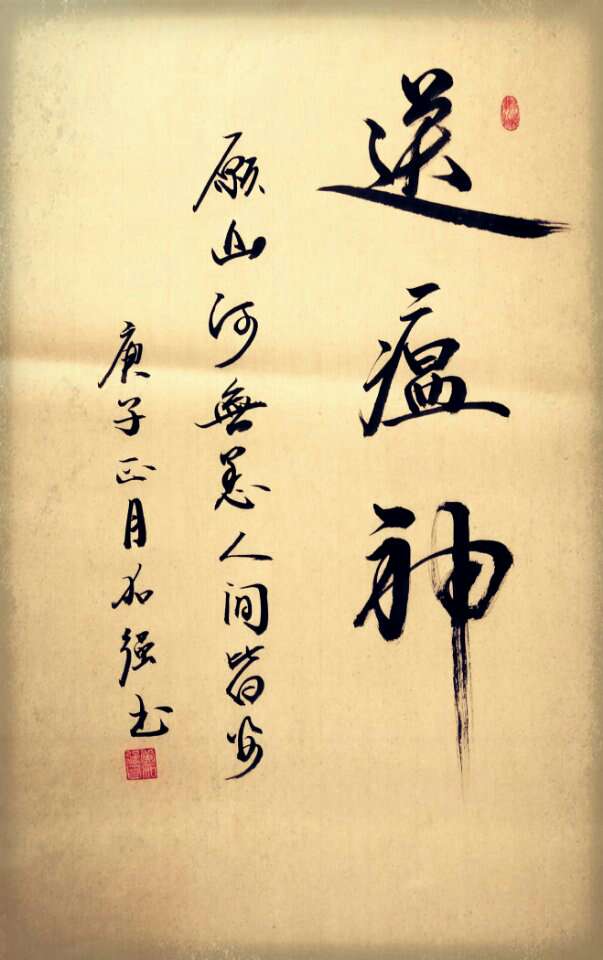 送瘟神
愿山河無恙人间皆安
庚子正月加强书